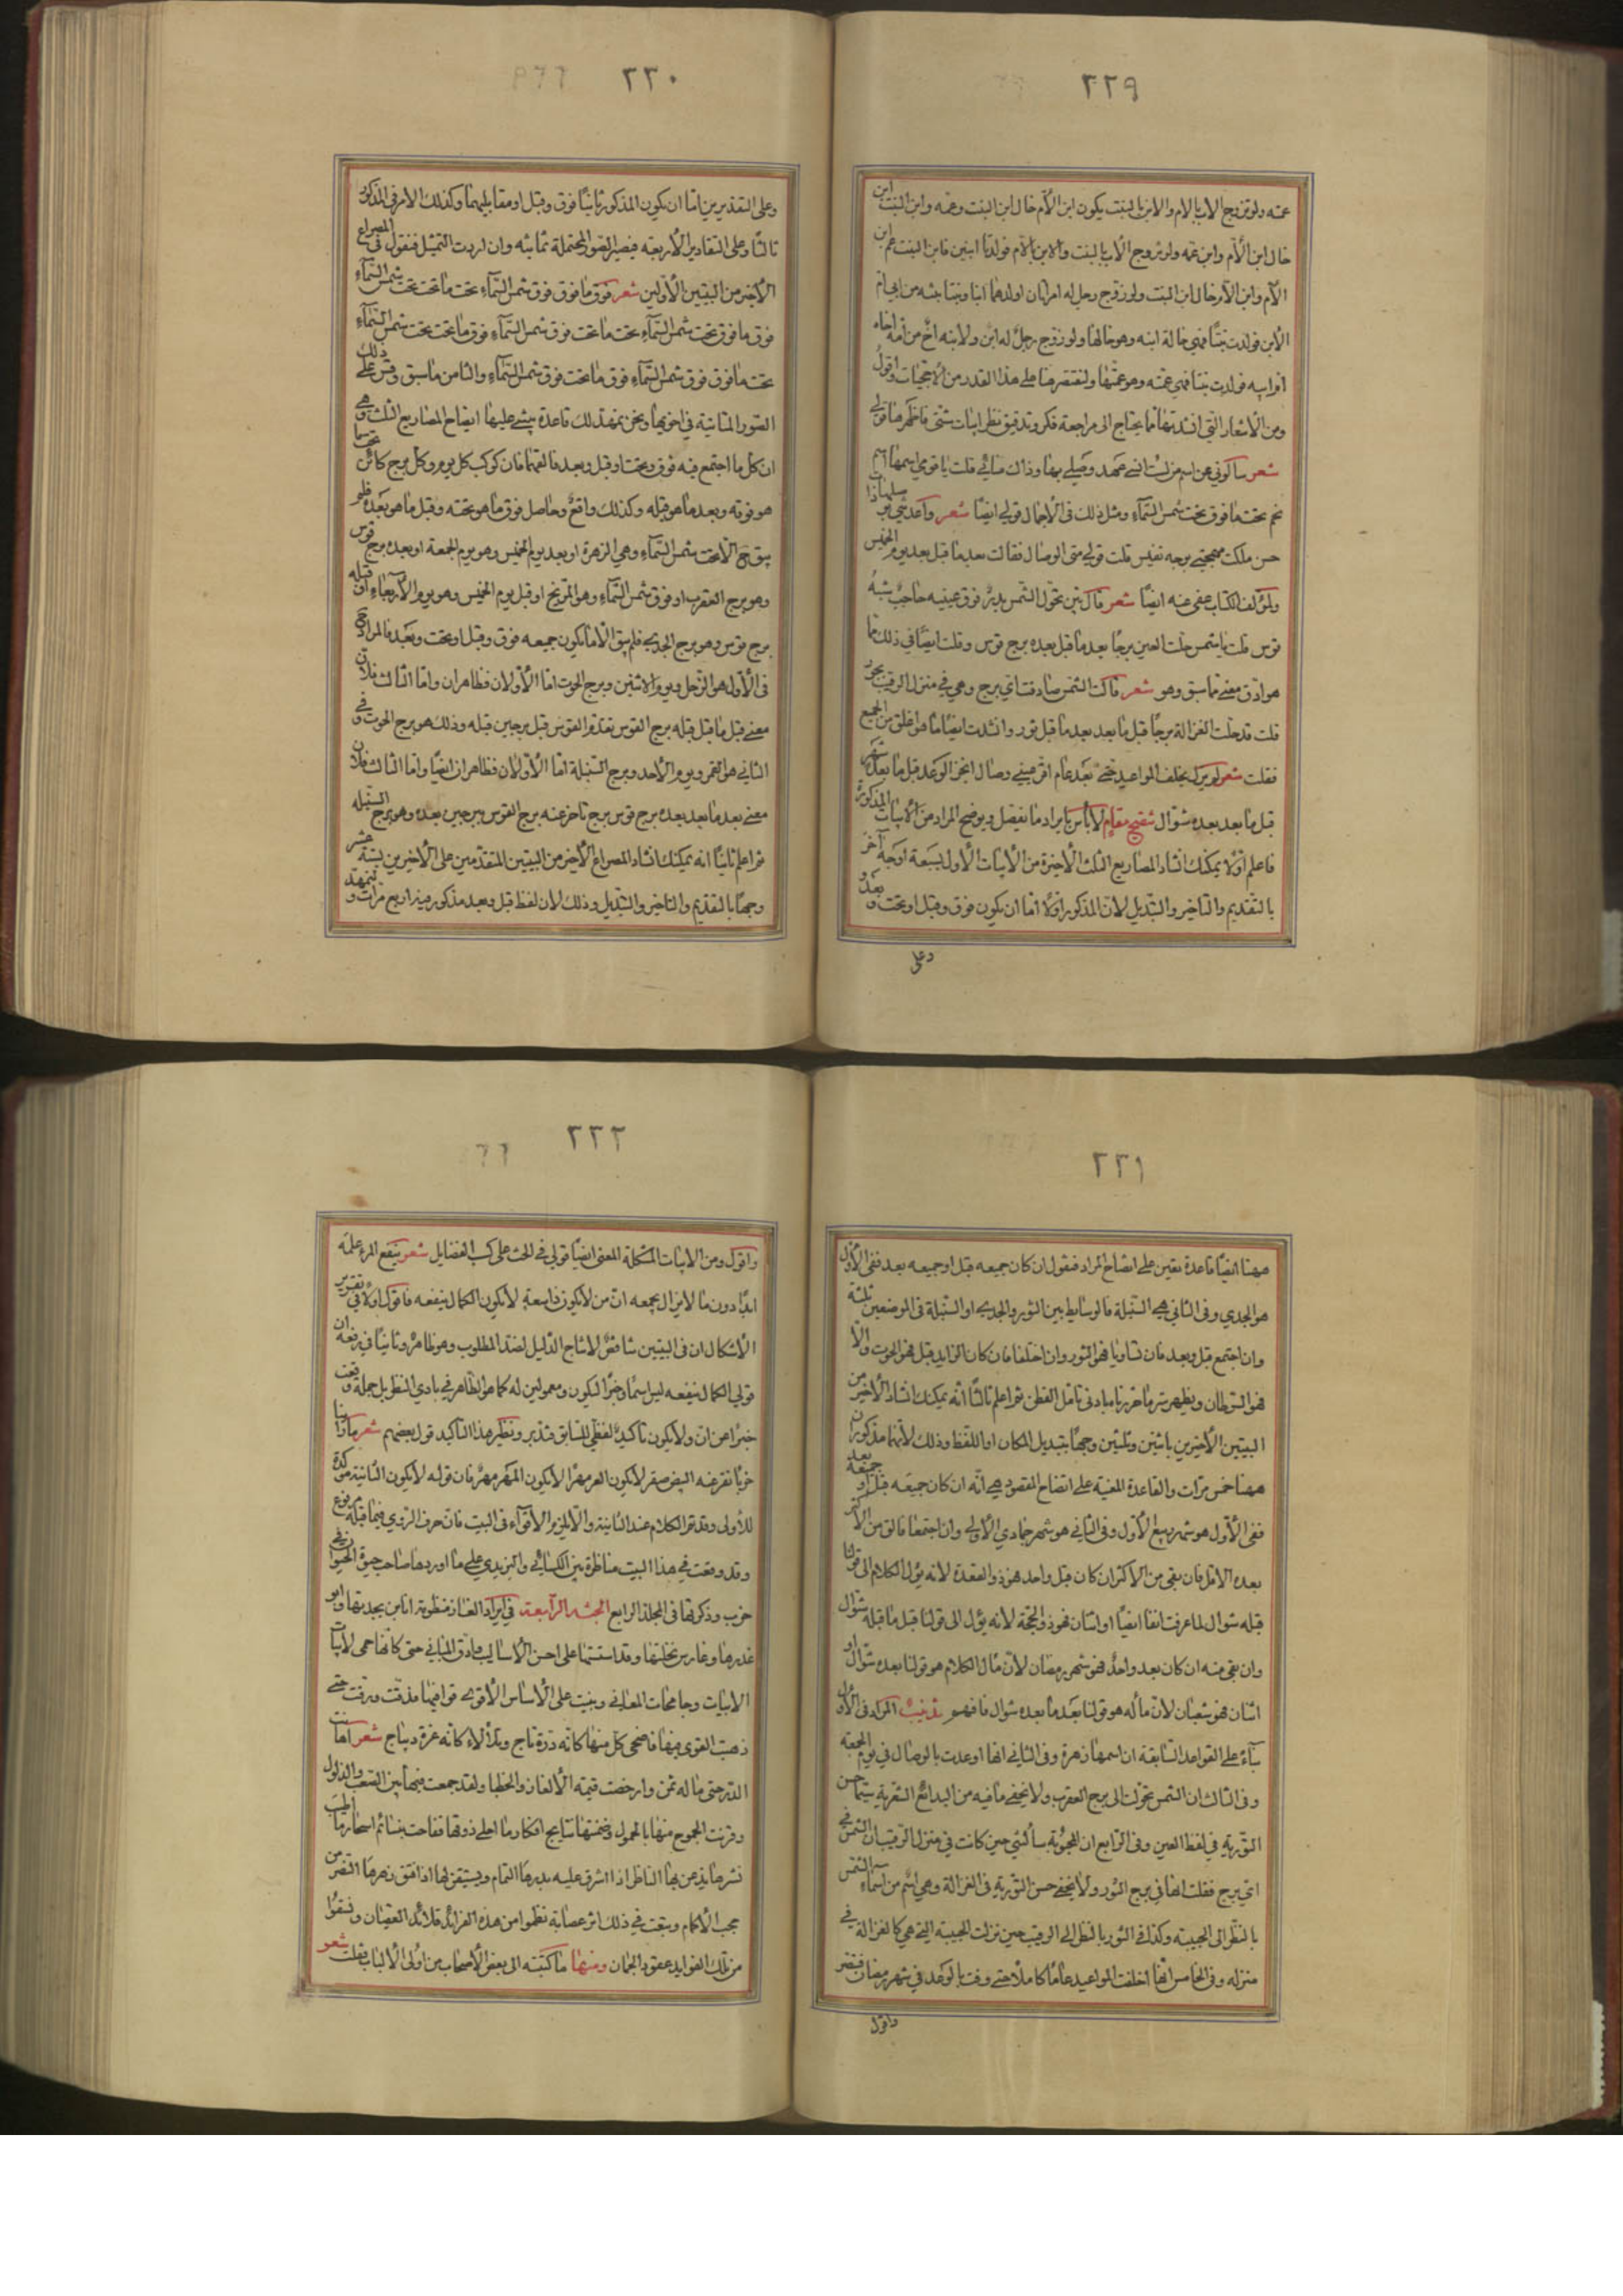 ٢٢٩
عمه ولو تزوج الاب بالام والابن بالبنت يكون ابن الأم خال ابن البنت وعمه وابن البنت ابن
خال ابن الأم وابن عمه ولو تزوج الأب بالبنت والابن بالأم فولدتا ابنين فابن البنت عم ابن
الأم وابن الأم خال ابن البنت ولو تزوج رجل له امرأتان اولدهما ابنا وبنتا بنته من ابى ام
الأبن فولدت بنتًا فهي خالة ابنه وهو خالها ولو تزوج رجل له ابن ولابنه اخ من امه اخاه
اخر ابيه فولدت بنتا فهي عمته وهو عمها ولنقتصر هنا على هذا القدر من الأحجيات واقول
ومن الأشعار التي انشدتها مما يحتاج الى مراجعة فكر وتدقيق نظر ابيات شتى فاظهرها قولي
شعر سالوني عن اسم من لست انسى عهد وصلي بها وذاك منائي قلت يا قومي اسمها اسم
نجم تحت ما فوق تحت شمس السمآء ومثل ذلك في الأجمال قولي ايضا شعر واعدتني
حسن ملكت مهجتي بوجه نفيس قلت قولي متى الوصال فقالت بعد ما قبل بعد يوم الخميس
ولمؤلف الكتاب عفى عنه ايضًا شعر قال بين تحول الشمس بدر فوق عينيه حاجب شبه
قوس قلت يا شمس حلت العين برجًا بعد ما قبل بعده برج قوس وقلت ايضًا في ذلك مما
هو ادق معنى مما سبق وهو شعر قالت الشمس صادفت اي برج وهي في منزل الرقيب
قلت قد حلت الغزالة برجًا قبل ما بعد بعد ما قبل ثور وانشدت ايضًا ما هو اغلق من الجميع
فقلت شعر لم يزل يخلف المواعيد حتى بعد عام اقر عيني وصال انجز الوعد قبل ما بعد شهر
قبل ما بعد بعده شوال تنقيح مقام لا بأس بايراد ما يفصل ويوضح المراد من الأبيات المذكورة
فاعلم اولا يمكنك انشاد المصاريع الثلث الأخيرة من الأبيات الأول بسبعة اوجه أخر
بالتقديم والتاخير والتبديل لان المذكور اولا اما ان يكون فوق وقبل او تحت و بعد
وعلى
٢٢٠
وعلى التقديرين اما ان يكون المذكور ثانيًا فوق وقبل او مقابليهما وكذلك الامر في المذكور
ثالثًا وعلى التقادير الأربعة فيصير الصور المحتملة ثمانية وان اردت التمثيل فنقول في المصراع
الأخير من البيتين الأولين شعر فوق ما فوق فوق شمس السمآء تحت ما تحت تحت شمس السمآء
فوق ما فوق تحت شمس السمآء تحت ما تحت فوق شمس السمآء فوق ما تحت تحت شمس السمآء
تحت ما فوق فوق شمس السمآء فوق ما تحت فوق شمس السمآء والثامن ما سبق وقس على ذلك
الصور الثمانية في اخويها ونحن نمهد لك قاعدة يبتني عليها ايضاح المصاريع الثلث وهي
ان كل ما اجتمع فيه فوق وتحت او قبل وبعد فالغهما فان كوكب كل يوم وكل برج كائن تحت ما
هو فوقه وبعد ما هو قبله وكذلك واقع وحاصل فوق ما هو تحته وقبل ما هو بعده فلم
يبق ح الا تحت شمس السمآء وهي الزهرة او بعد يوم الخميس وهو يوم الجمعة او بعد برج قوس
وهو برج العقرب او فوق شمس السمآء وهو المريخ او قبل يوم الخميس وهو يوم الأربعآء او قبله
برج قوس وهو برج الجدي فلم يبق الا ما يكون جميعه فوق وقبل او تحت وبعد فالمراد ح
في الأول هو الزحل ويوم الاثنين وبرج الحوت اما الأولان فظاهران واما الثالث فلان
معنى قبل ما قبل قبله برج القوس تقدم القوس قبل برجين قبله وذلك هو برج الحوت و في
الثاني هو القمر ويوم الأحد وبرج السنبلة اما الأولان فظاهران ايضًا واما الثالث فلان
معنى بعد ما بعد بعده برج قوس برج تاخر عنه برج القوس ببرجين بعده وهو برج السنبله
ثم اعلم ثانيًا انه يمكنك انشاد المصراع الأخير من البيتين المتقدمين على الأخيرين بستة عشر
وجهًا بالتقديم والتاخير والتبديل وذلك لان لفظ قبل وبعد مذكور فيه اربع مرات و تمهيد
٢٢١
ههنا ايضًا قاعدة تعين على ايضاح المراد فنقول ان كان جميعه قبل او جميعه بعد ففي الأول
هو الجدي وفي الثاني هي السنبلة فالوسايط بين الثور والجدي او السنبلة في الموضعين ثلثة
وان اجتمع قبل وبعد فان تساويا فهو الثور وان اختلفا فان كان الزايد قبل فهو الحوت والا
فهو السرطان ويظهر سر ما حررنا بادنى تامل الفطن ثم اعلم ثالثًا أنه يمكنك انشاد الأخير من
البيتين الأخيرين باثنين وثلثين وجهًا بتبديل المكان او اللفظ وذلك لأنهما مذكوران
ههنا خمس مرات والقاعدة المعينة على اتضاح المقصود هي انه ان كان جميعه قبل او جميعه بعد
ففي الأول هو شهر ربيع الأول وفي الثاني هو شهر جمادي الأولى وان اجتمعا فالق من الأكثر
بعده الاقل فان بقي من الأكثر ان كان قبل واحد فهو ذو القعدة لأنه يؤل الكلام الى قولنا
قبله شوال لما عرفت انفا ايضًا او اثنان فهو ذو الحجة لأنه يؤل الى قولنا قبل ما قبله شوال
وان بقي منه ان كان بعد واحد فهو شهر رمضان لأن مآل الكلام هو قولنا بعده شوال او
اثنان فهو شعبان لان مآله هو قولنا بعد ما بعده شوال فافهم تذنيب المراد في الأول
بنآء على القواعد السابقة ان اسمها زهرة وفي الثاني انها اوعدت بالوصال في يوم الجمعة
وفي الثالث ان الشمس تحولت الى برج العقرب ولا يخفى ما فيه من البدائع الشعرية سيما حسن
التورية في لفظ العين وفي الرابع ان المحبوبة سألتني حين كانت في منزل الرقيب ان الشمس في
اي برج فقلت انها في برج الثور ولا يخفى حسن التورية في الغزالة وهي اسم من اسماء الشمس
بالنظر الى الحبيبة وكذا في الثور بالنظر الى الرقيب حين نزلت الحبيبة التي هي كالغزالة في
منزله وفي الخامس انها اخلفت المواعيد عامًا كاملا حتى وفت بالوعد في شهر رمضان فتبصر
واقول
٢٢٢
واقول ومن الابيات المشكلة المعنى ايضًا قولي في الحث على كسب الفضايل شعر ينفع المرء علمه
ابدًا دون ما لا يزال يجمعه ان من لا يكون ذا سعة لا يكون الكمال ينفعه فاقول اولا في تقرير
الأشكال ان في البيتين تناقضًا لانتاج الدليل لضد المطلوب وهو ظاهر وثانيًا في رفعه ان
قولي الكمال ينفعه ليس اسمًا وخبرًا ليكون ومعمولين له كما هو الظاهر في بادي النظر بل جملة وقعت
خبرًا عن ان ولا يكون تأكيد لفظي للسابق فتدبر ونظير هذا التاكيد قول بعضهم شعر ما رأينا
خربا نقر عنه البيض صقر لا يكون العير مهرًا لا يكون المهر مهر فان قوله لا يكون الثانية مؤكدة
للأولى وقد تم الكلام عند الثانية والا لزم الاقوآء في البيت فان حرف الروي فيما قبله مرفوع
وقد وقعت في هذا البيت مناظرة بين الكسائي واليزيدي على ما اوردها صاحب حيوة الحيوان في
خرب وذكرتها في المجلد الرابع الجنسة الرابعة في ايراد الغاز منظومة انا ابن بجدتها وابو
عذرها وغارس نخلتها وقد استستها على احسن الأساليب وادق المباني حتى كانها حمى لأبيات
الابيات وجامحات المعاني وبنيت على الأساس الأقوى قوافيها فدقت ورقت حتى
ذهبت القوى فيها فاضحى كل منها كانه درة تاج وتلألأ كانه غرة ديباج شعر اهانت
الدر حتى ما له ثمن وارخصت قيمة الألغاز والخطبا ولقد جمعت فيها بين الصعب والذلول
وقرنت الجموح منها بالحمول وضمنتها نتايج افكار وما احلى ذوقها ففاحت بنسائم اسحارها اطيب
نشرها يذعن بها الناظر اذا اشرق عليه بدرها التمام ويستيقن لها اذا فتق زهرها النضر من
حجب الأكمام وتبعت في ذلك اثر عصابة نظموا من هذه الفرائد قلائد العقيان ونسقوا
من تلك الفوايد عقود الجمان ومنها ما كتبته الى بعض الأصحاب من اولى الألباب فقلت شعر